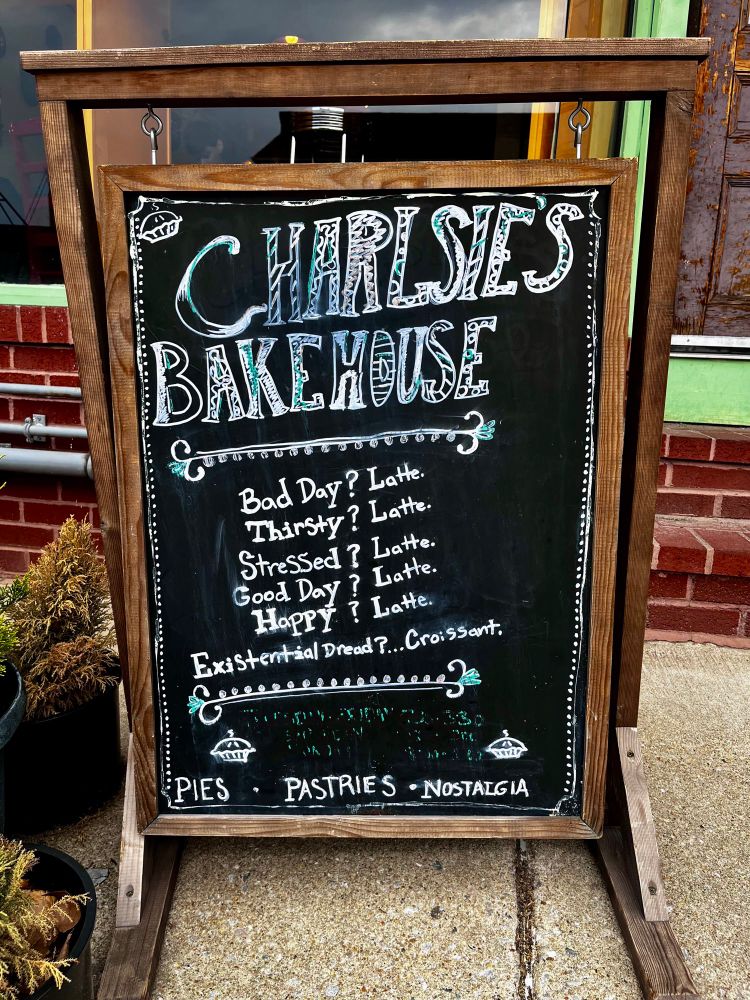 CHARLSIE'S
BAKEHOUSE
Bad Day? Latte.
Thirsty? Latte.
Stressed? Latte.
Good Day? Latte.
Happy? Latte.
Existential Dread?...Croissant.
PIES · PASTRIES · NOSTALGIA